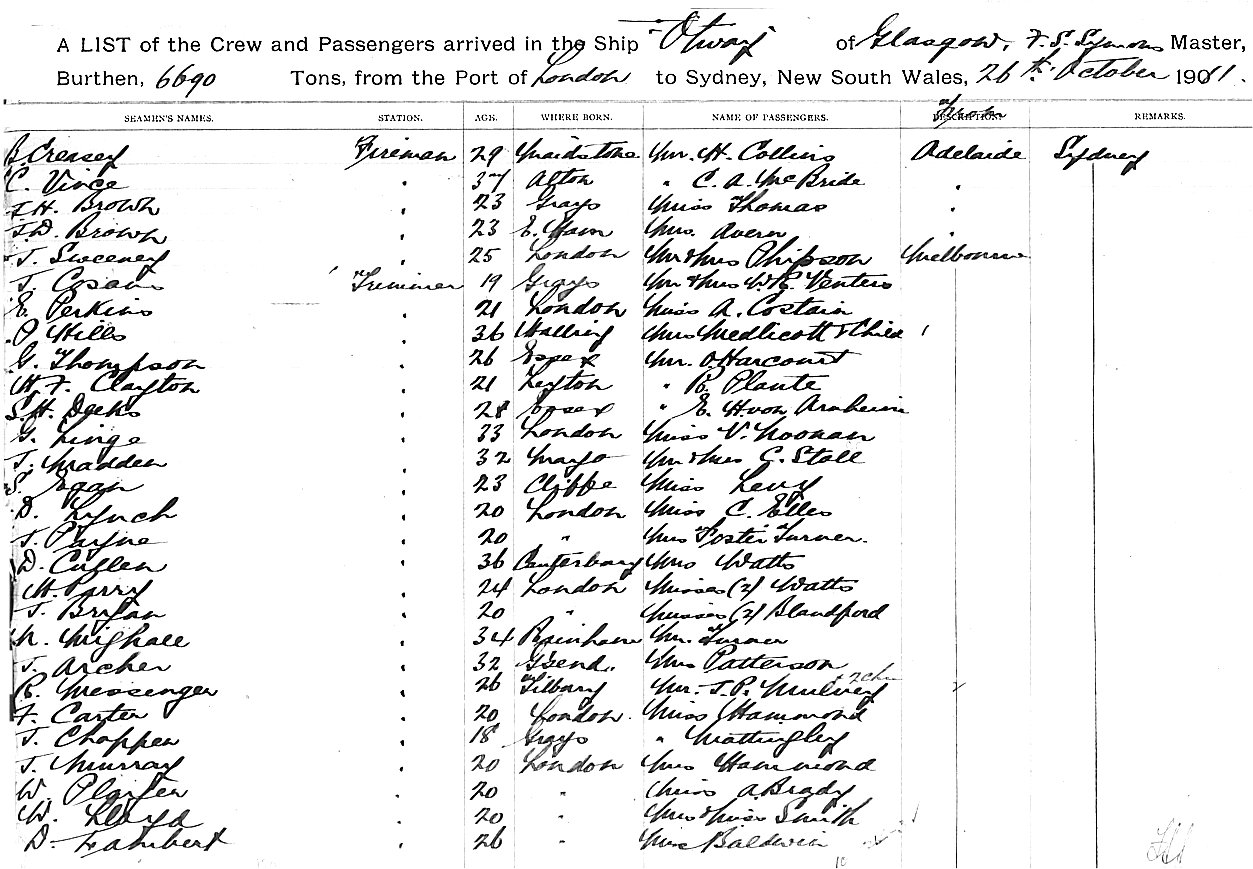 A LIST of the Crew and Passengers arrived in the Ship Otway of Glasgow, F. S. Symons Master,
Burthen, 6690 Tons, from the Port of London to Sydney, New South Wales, 26th October 1911.
SEAMEN'S NAMES. STATION. AGE. WHERE BORN. NAME OF PASSENGERS. DESCRIPTION From REMARKS.
B. Creasey Fireman 29 Maidstone Mr. H. Collins Adelaide Sydney
C. Vince " 37 Alton " C. A. McBride "
F. H. Brown " 23 Grays Miss Thomas "
F. D. Brown " 23 E. Ham Mrs. "
T. Sweeney " 25 London Mr & Mrs Phipson Melbourne
T. Trimmer 19 Grays Mr & Mrs W. R. Venters
E. Perkins " 21 London Miss A. Costain
P. Hills " 36 Halling Mrs Medlicott & Child 1
G. Thompson " 26 Essex Mr. O. Harcourt
W. F. Clayton " 21 Leyton " R. Plante
S. H. Deeks " 28 Essex " E. H. von Arnheim
G. Linge " 33 London Miss V. Noonan
T. Madden " 32 Mayo Mr & Mrs G. Stall
S. Egan " 23 Cliffe Miss Levy
D. Lynch " 20 London Miss C. Elles
T. Payne " 20 " Mrs Foster Turner.
D. Cullen " 36 Canterbury Mrs Watts
W. Parry " 24 London Misses (2) Watts
T. Bryan " 20 " Misses (2) Blandford
N. Mighall " 34 Rainham Mr. Turner
T. Archer " 32 G'send. Mrs Patterson
R. Messenger " 26 Tilbury Mr. T. P. Mulvey & 2 chn
F. Carter " 20 London. Miss Hammond
T. Chappen " 18 Grays " Mattingley
T. Murray " 20 London Mrs Hammond
W. " 20 " Miss A. Brady
W. Lloyd " 20 " Mrs & Miss Smith
D. Lambert " 26 " Miss Baldwin